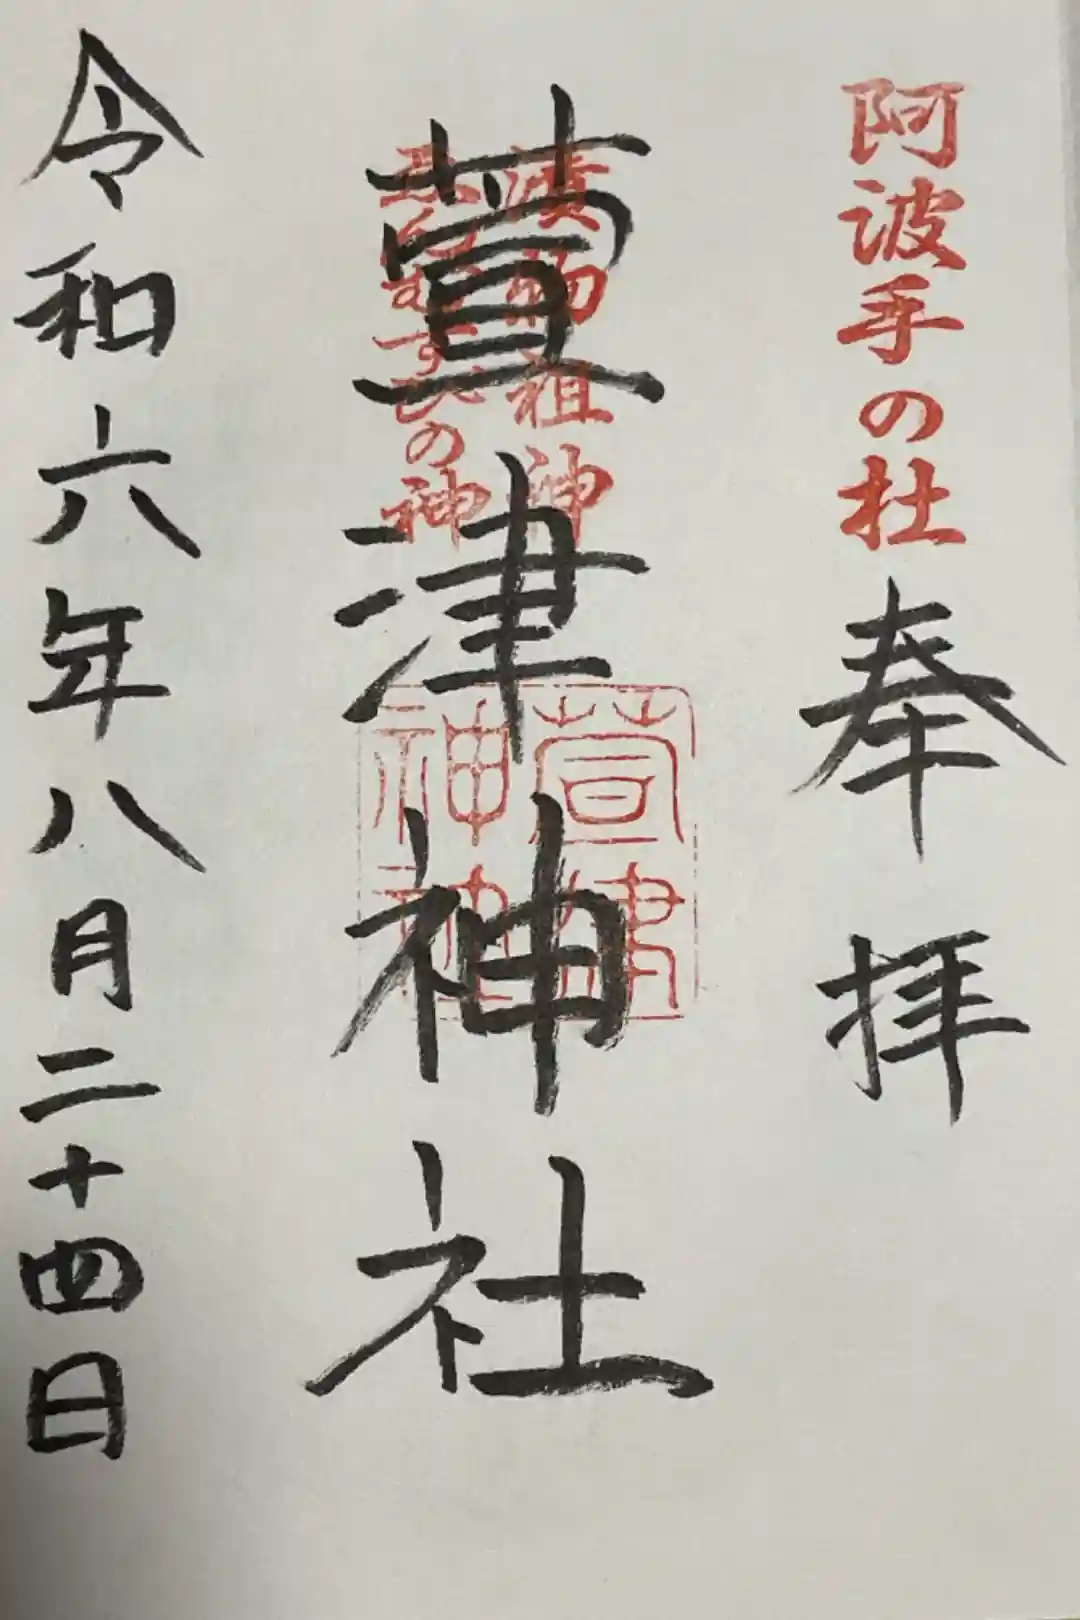 阿波手の杜
奉拝
漬物祖神
えんむすびの神
萱津神社
萱津
神社
令和六年八月二十四日